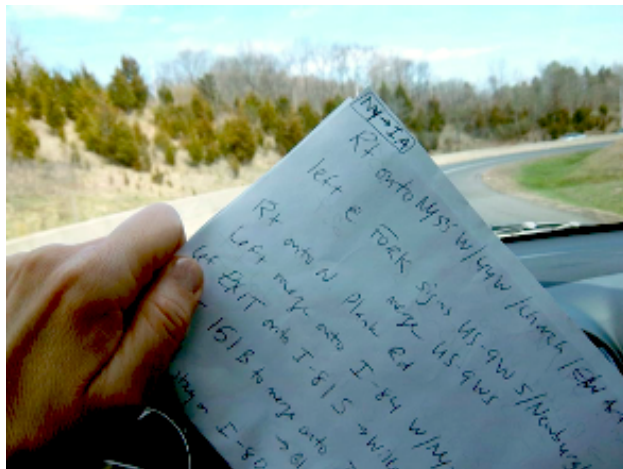 NY→IA
Rt onto NY55 W/44W/Church/
left @ FORK signs US-9W S/Newbu
merge US-9WS
Rt onto N Plank Rd
Left merge onto I-84 W/NY
Left EXIT onto I-81 S → Wilk
161B to merge onto
stay on I-80